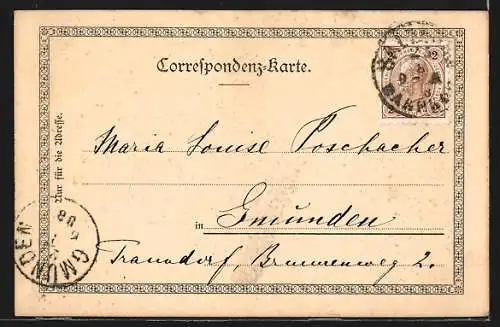 Correspondenz-Karte.
Nur für die Adresse.
Maria Louise Poschacher
in Gmunden
Traundorf, Brunnenweg 2.
GMUNDEN
98
BAHNHOF
2